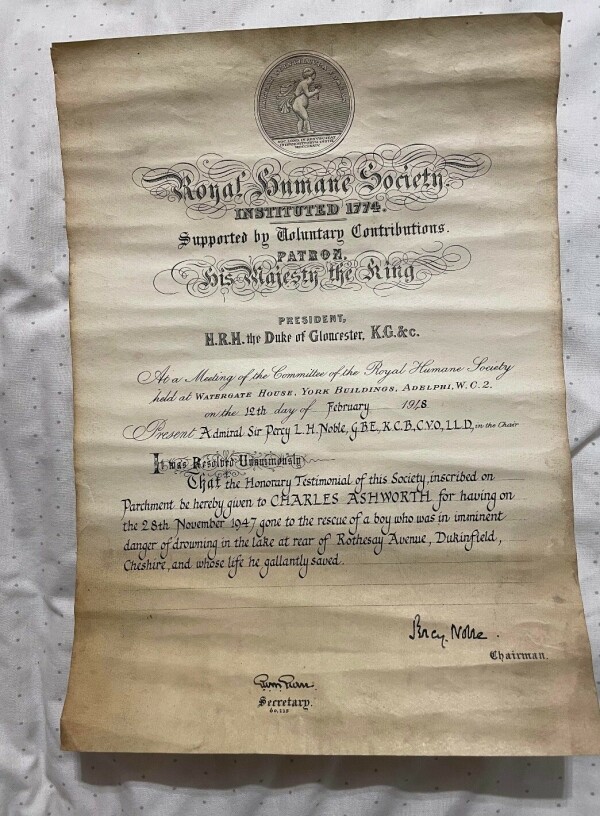 Royal Humane Society.
INSTITUTED 1774.
Supported by Voluntary Contributions.
PATRON,
His Majesty the King
PRESIDENT,
H.R.H. the Duke of Gloucester, K.G. &c.
At a Meeting of the Committee of the Royal Humane Society
held at WATERGATE HOUSE, YORK BUILDINGS, ADELPHI, W.C.2.
on the 12th day of February 1948.
Present Admiral Sir Percy L.H. Noble, G.B.E., K.C.B., C.V.O., LL.D, in the Chair
It was Resolved Unanimously
That the Honorary Testimonial of this Society, inscribed on
Parchment be hereby given to CHARLES ASHWORTH for having on
the 28th November 1947 gone to the rescue of a boy who was in imminent
danger of drowning in the lake at rear of Rothesay Avenue, Dukinfield,
Cheshire, and whose life he gallantly saved.
Percy Noble
Chairman.
Secretary.
60,115